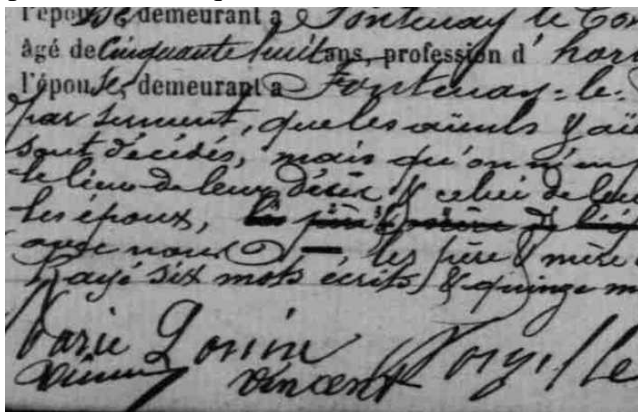 l'épouse demeurant à Fontenay le Com
âgé de Cinquante huit ans, profession d' hor
l'épouse, demeurant à Fontenay-le-
par serment, que les aïeuls & aï
sont décédés, mais qu'on n'en
le lieu de leur décès, & celui de leu
les époux, les père & mère de l'é
avec nous — les père & mère
Rayé six mots écrits, & quinze m
Marie Gonin
vincent